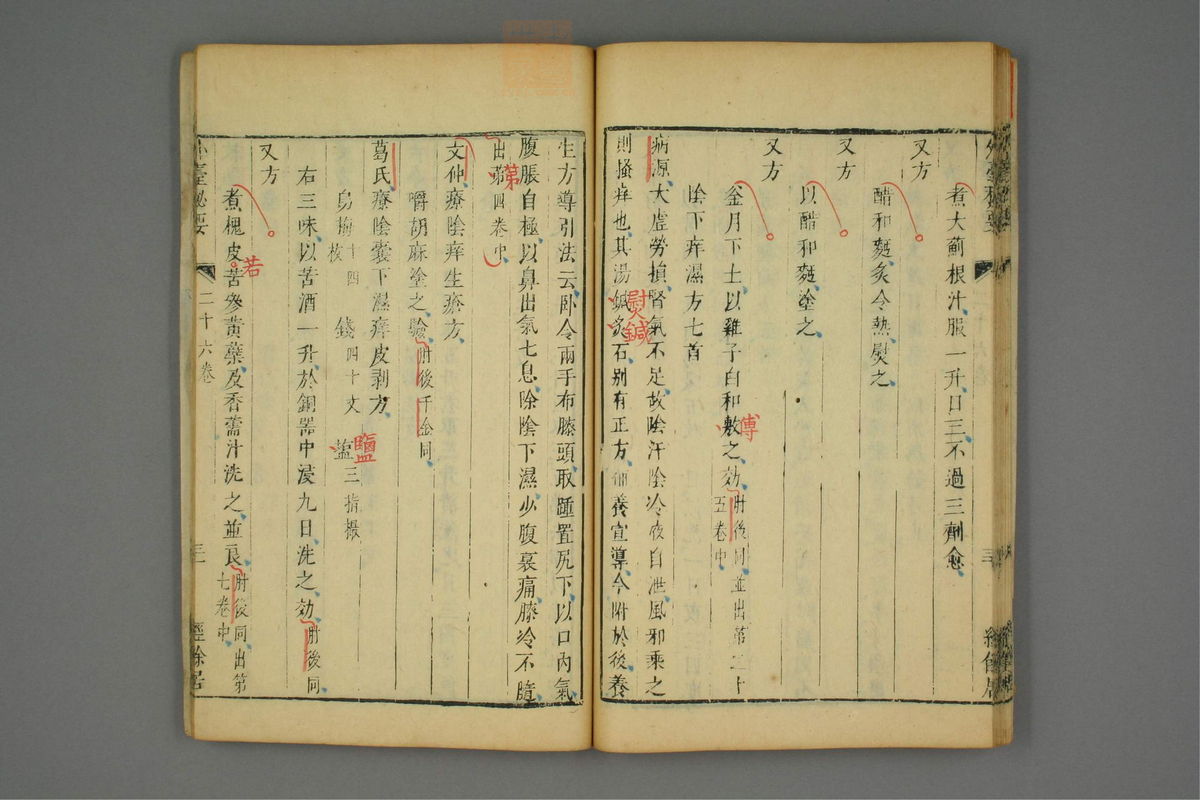 煮大薊根汁服一升日三不過三劑愈
又方
醋和麪炙令熱熨之
又方
以醋和麪塗之
又方
釜月下土以雞子白和敷之効肘後同並出第二十
五卷中
傅
陰下痒濕方七首
病源大虛勞損腎氣不足故陰汗陰冷夜自泄風邪乘之
則搔痒也其湯鍼炙石别有正方補養宣導今附於後養
熨鍼
生方導引法云卧令兩手布膝頭取踵置尻下以口內氣
腹脹自極以鼻出氣七息除陰下濕少腹裏痛膝冷不隨
出第四卷中
第
文仲療陰痒生瘡方
嚼胡麻塗之驗肘後千金同
葛氏療陰囊下濕痒皮剥方
烏梅十四枚 錢四十文 䀋三指撮
鹽
右三味以苦酒一升於銅器中浸九日洗之効肘後同
又方
煮槐皮苦參黃蘗及香薷汁洗之並良肘後同出第
七卷中
若
外臺秘要 二十六卷 三 經餘居